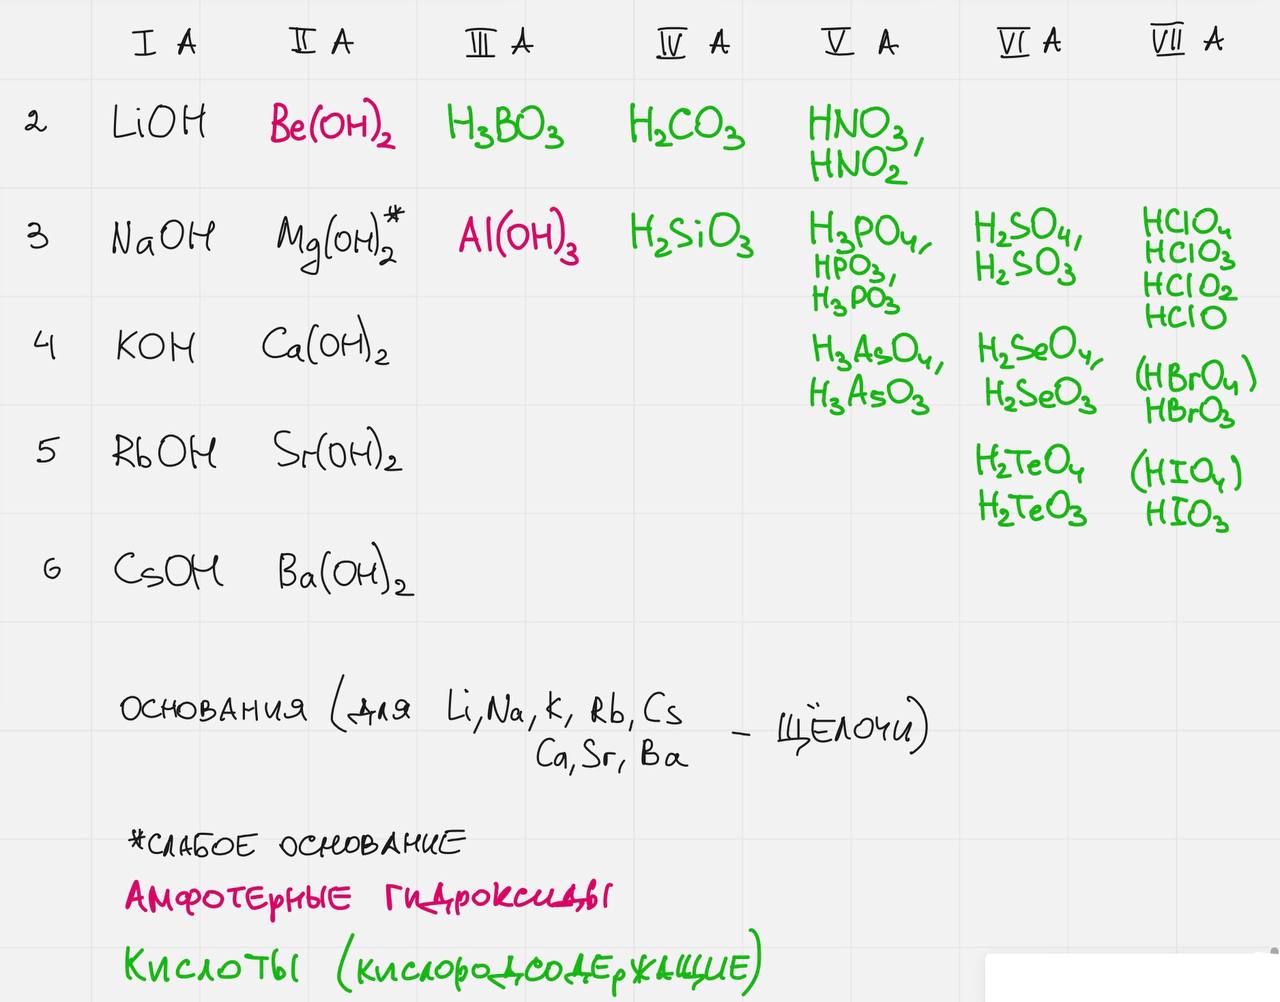 I A II A III A IV A V A VI A VII A
2 LiOH Be(OH)₂ H₃BO₃ H₂CO₃ HNO₃,
HNO₂
3 NaOH Mg(OH)₂* Al(OH)₃ H₂SiO₃ H₃PO₄, H₂SO₄, HClO₄
HPO₃, H₂SO₃ HClO₃
H₃PO₃ HClO₂
HClO
4 KOH Ca(OH)₂ H₃AsO₄, H₂SeO₄, (HBrO₄)
H₃AsO₃ H₂SeO₃ HBrO₃
5 RbOH Sr(OH)₂ H₂TeO₄ (HIO₄)
H₂TeO₃ HIO₃
6 CsOH Ba(OH)₂
ОСНОВАНИЯ (ДЛЯ Li, Na, K, Rb, Cs
Ca, Sr, Ba – ЩЁЛОЧИ)
*СЛАБОЕ ОСНОВАНИЕ
АМФОТЕРНЫЕ ГИДРОКСИДЫ
КИСЛОТЫ (КИСЛОРОДСОДЕРЖАЩИЕ)